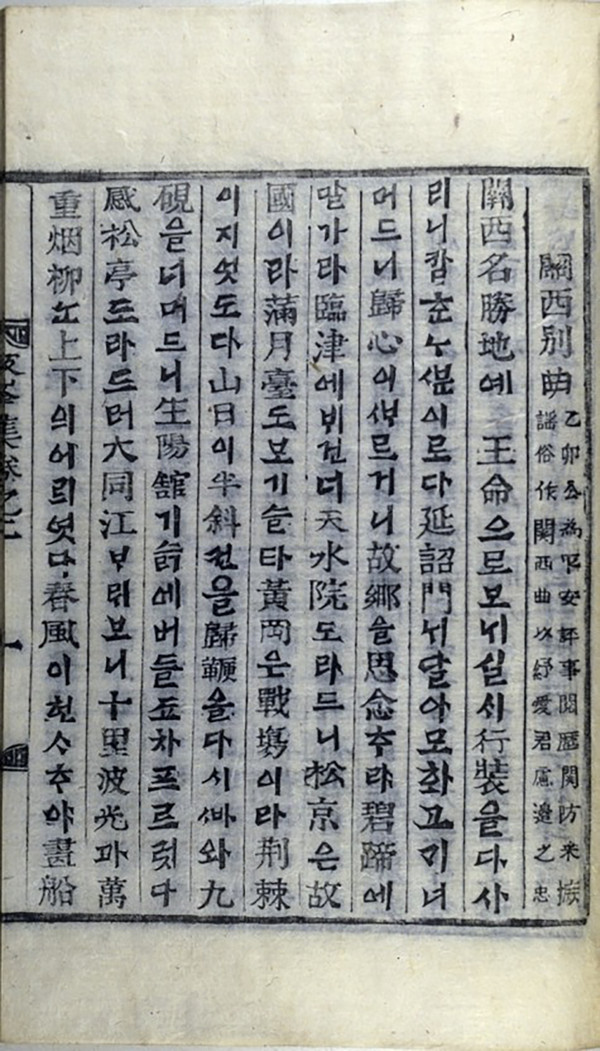 關西別曲 乙卯公為平安評事閱歷關防采摭
謠俗作關西曲以紓愛君慮邊之忠
關西名勝地예 王命으로보ᄂᆡ실ᄉᆡ行裝을다사
리니칼ᄒᆞᆫᄂᆞᄲᅮᆫ이로다延詔門ᄂᆡ달아모화고ᄀᆡ너
머드니歸心이ᄲᆞᄅᆞ거니故鄕을思念ᄒᆞ랴碧蹄에
말가라臨津에ᄇᆡ건너天水院도라드니松京은故
國이라滿月臺도보기슬타黃岡은戰塲이라荊棘
이지엇도다山日이半斜컨을歸鞭을다시ᄲᅢ와九
硯을너머드니生陽舘기슭에버들죠차프르럿다
感松亭도라드러大同江ᄇᆞ라보니十里波光과萬
重烟柳ᄂᆞᆫ上下의어릐엿다春風이헌ᄉᆞᄒᆞ야畫船
岐峯集卷之三 一